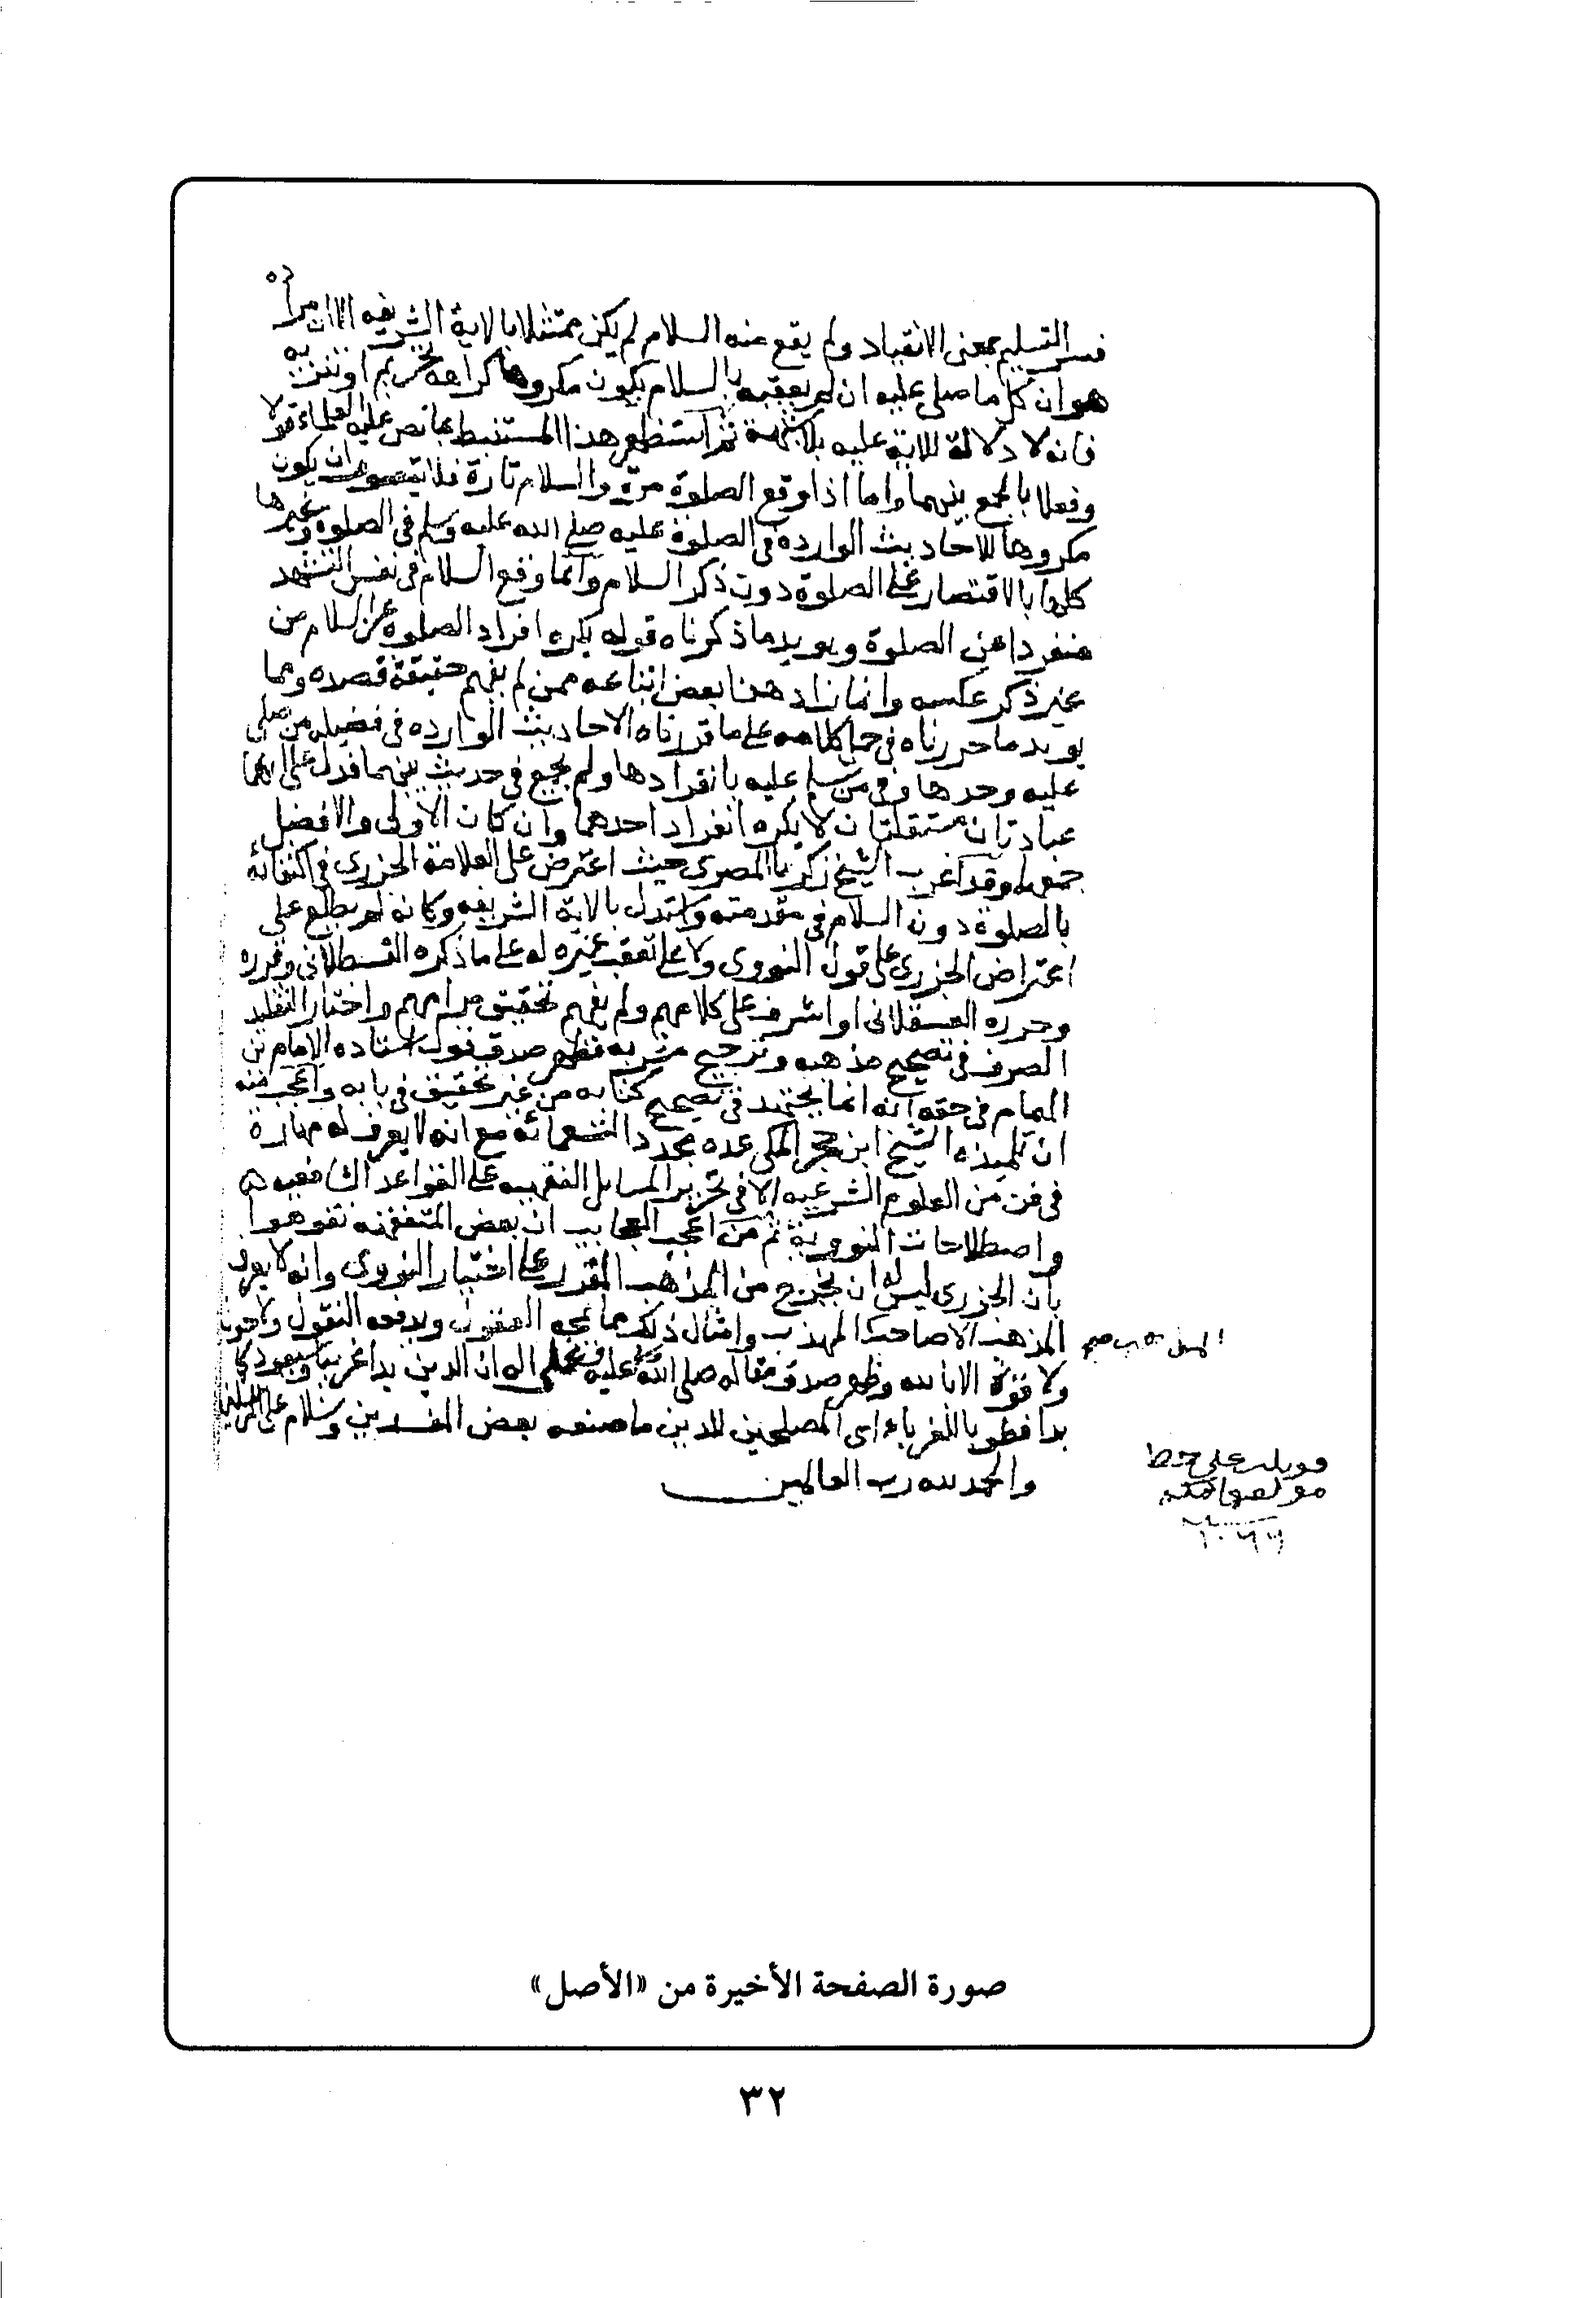 فسر التسليم بمعنى الانقياد ولم يقع منه السلام لم يكن ممتثلا بالاية الشريفه الا ان مراده
هو ان كل ما صلى عليه ان لم يعقبه بالسلام يكون مكروها كراهة تحريم او تنزيه
فانه لا دلالة للاية عليه بلا شبهة ثم استظهر هذا المستنبط بما نص عليه العلماء قولا
وفعلا بالجمع بينهما واما اذا وقع الصلوة مرة والسلام تارة فلا يتصور ان يكون
مكروها للاحاديث الوارده في الصلوة عليه صلى الله عليه وسلم في الصلوة وغيرها
كلها بالاقتصار على الصلوة دون ذكر السلام وانما وقع السلام في نفس التشهد
منفردا عن الصلوة ويويد ما ذكرناه قوله يكره افراد الصلوة عن السلام من
غير ذكر عكسه وانما زاد هذا بعض اتباعه ممن لم يفهم حقيقة قصده ومما
يويد ما حررناه في حمل كلامه على ما قررناه الاحاديث الوارده في فضيله من صلى
عليه وحدها وفي من سلم عليه بانفرادها ولم يجمع في حديث بينهما فدل على انهما
عبادتان مستقلتان لا يكره انفراد احدهما وان كان الاولى والافضل
جمعهما وقد اغرب الشيخ زكريا المصري حيث اعترض على العلامة الجزري في اكتفائه
بالصلوة دون السلام في مقدمته واستدل بالاية الشريفه وكانه لم يطلع على
اعتراض الجزري على قول النووي ولا على تعقب غيره له على ما ذكره القسطلاني وقرره
وحرره العسقلاني او اشرف على كلامهم ولم يفهم تحقيق مرامهم واختار التقليد
الصرف في تصحيح مذهبه وترجيح مشربه فظهر صدق قول استاده الامام بن
الهمام في حقه انه انما يجتهد في تصحيح كتابه من غير تحقيق في بابه واعجب منه
ان تلميذه الشيخ ابن حجر المكي عده مجدد التسعمائة مع انه لا يعرف له مهارة
في فن من العلوم الشرعيه الا في تحرير المسايل الفقهيه على القواعد الشافعيه
واصطلاحات النووية ثم من اعجب العجايب ان بعض المتفقهه تفوهوا
بان الجزري ليس له ان يخرج من المذهب المقرر على اختيار النووي وانه لا يعرف
المذهب الا صاحب المهذب وامثال ذلك مما تمجه العقول ويدفعه النقول ولا حول
ولا قوة الا بالله وظهر صدق مقاله صلى الله عليه وسلم ان الدين بدا غريبا وسيعود كما
بدا فطوبا للغرباء اى المصلحين للدين ما صنعه بعض المفسدين وسلام على المرسلين
والحمد لله رب العالمين
قوبلت على خط
مولفها
صورة الصفحة الأخيرة من «الأصل»
٣٢